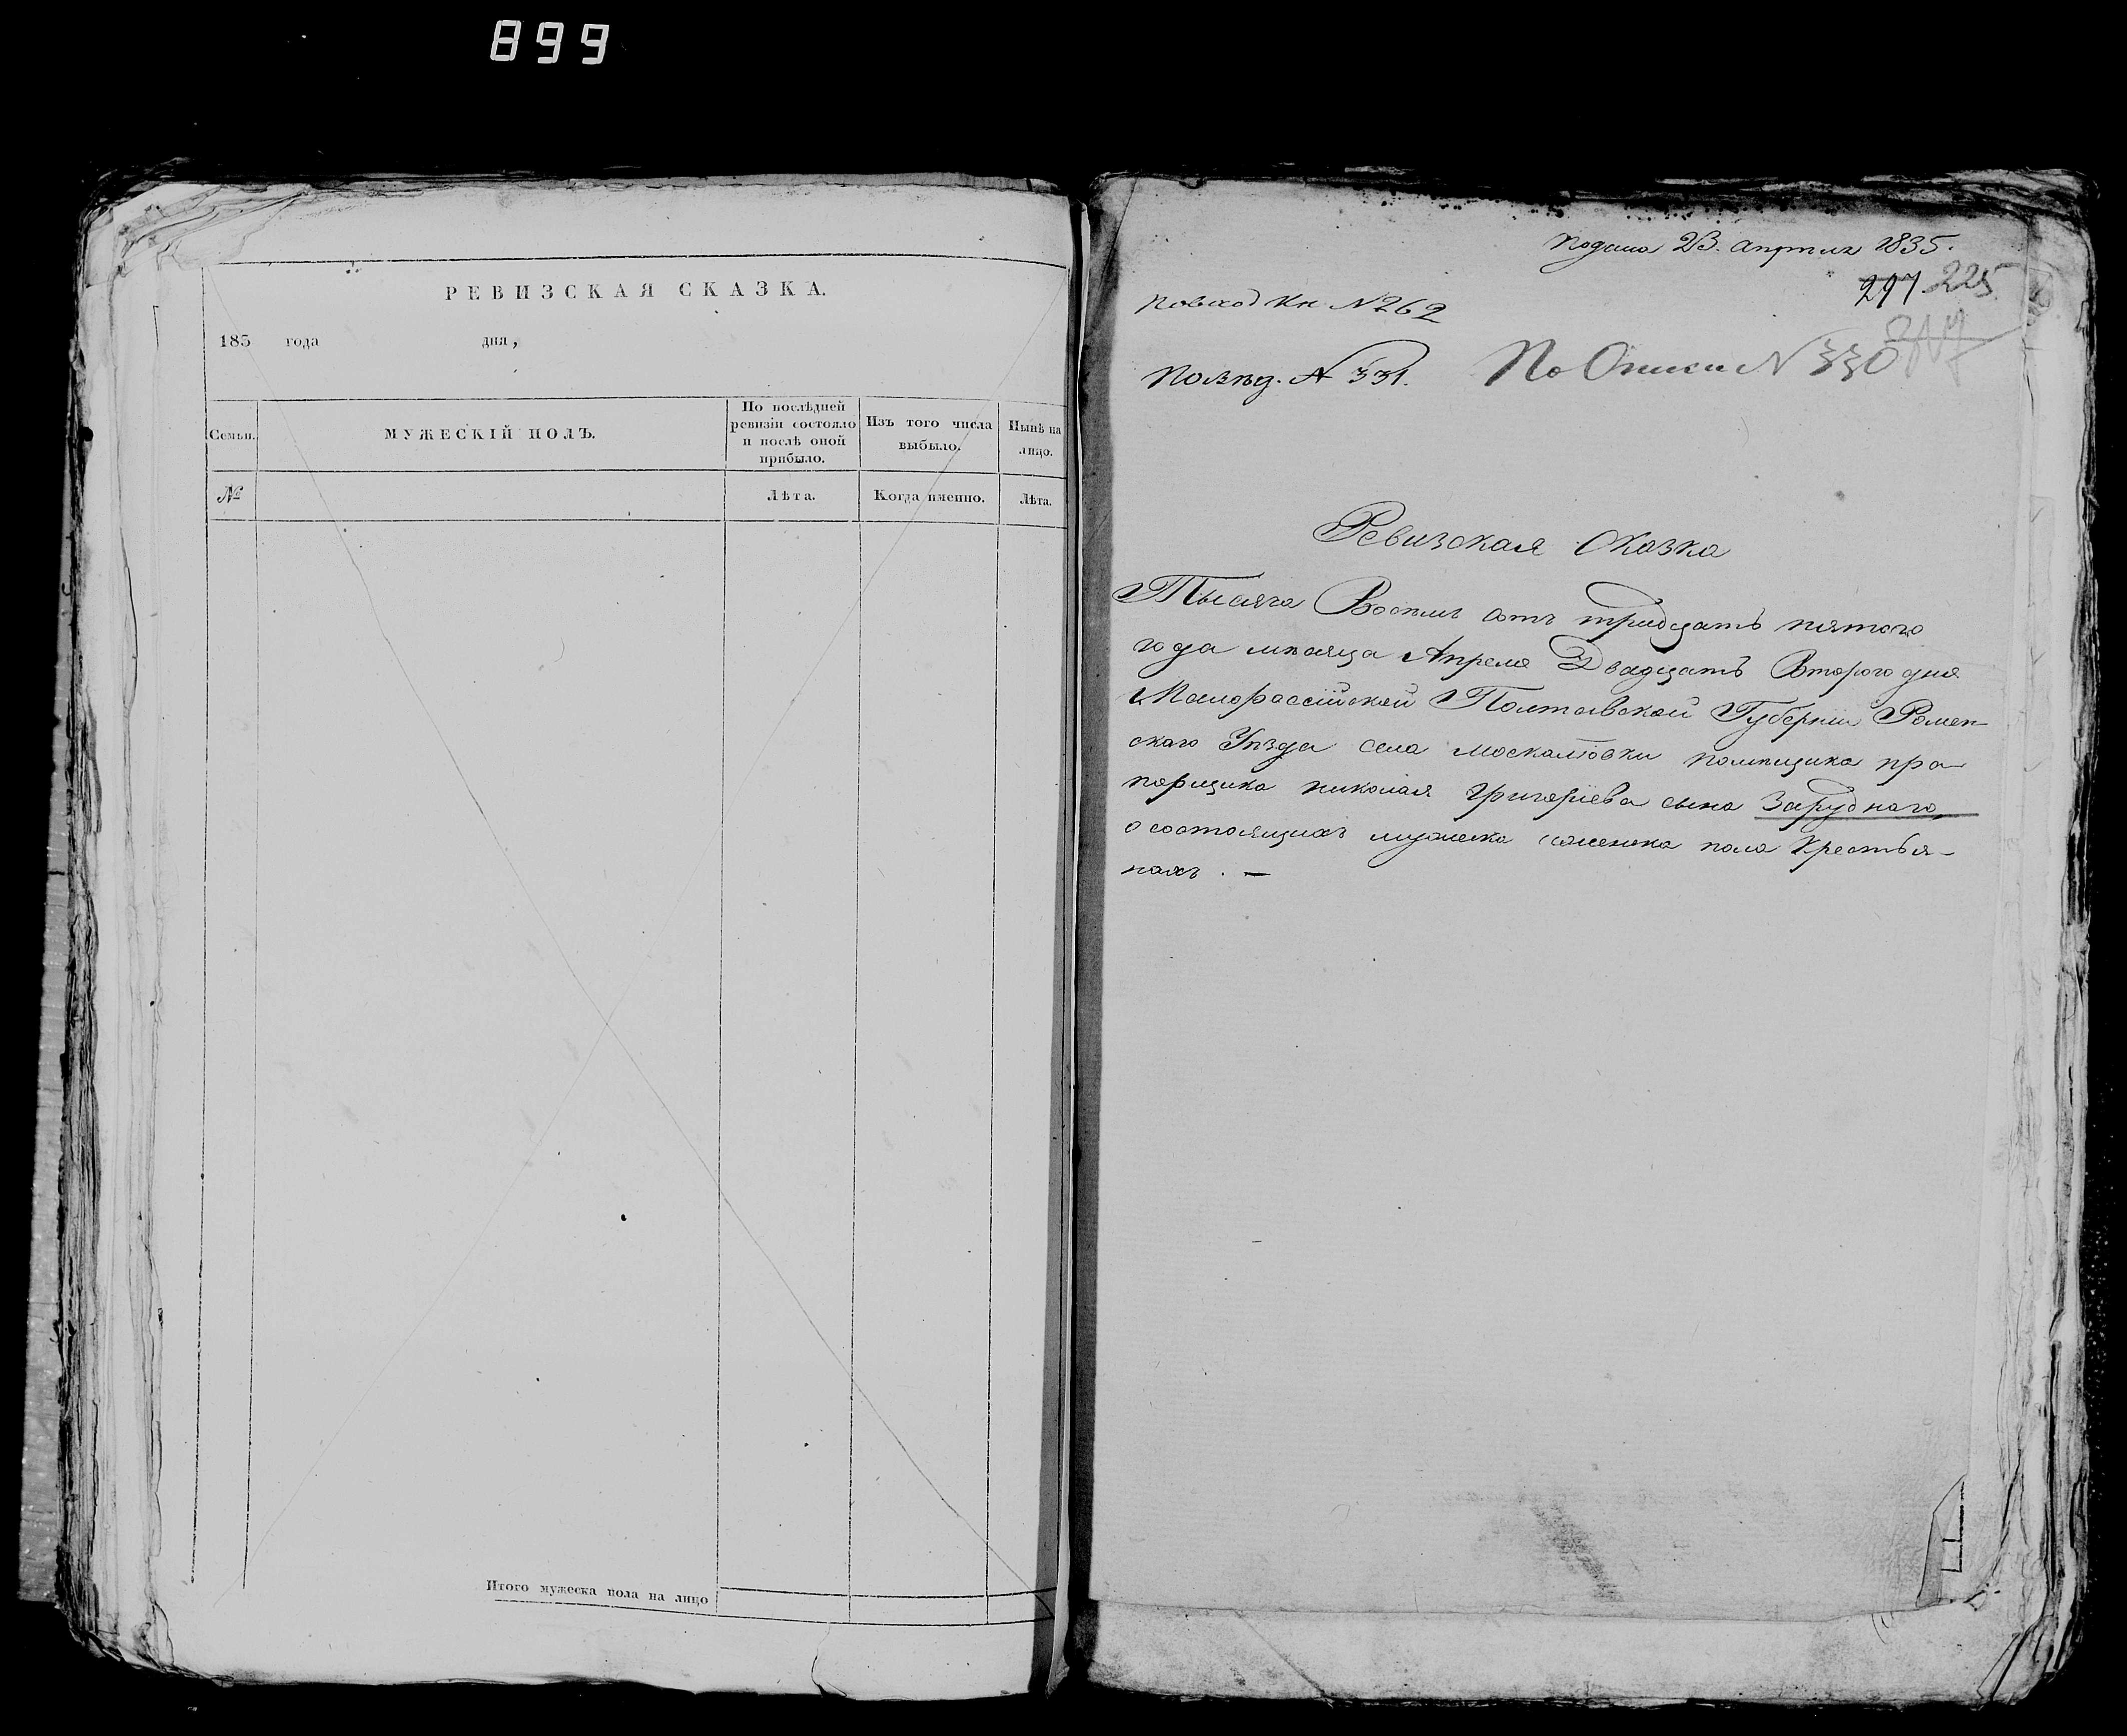 899
РЕВИЗСКАЯ СКАЗКА.
183 года дня,
Семьи.
МУЖЕСКІЙ ПОЛЪ.
По послѣдней
ревизіи состояло
и послѣ оной
прибыло.
Изъ того числа
выбыло.
Нынѣ на
лицо.
№
Лѣта.
Когда именно.
Лѣта.
Итого мужеска пола на лицо
Подана 23. апреля 1835.
225
Повход Кн №262
№ 331.
По Описи № 330
Ревизская Сказка
Тысяча Восемь сотъ тридцать пятого
года мѣсяца Апреля Двадцать Второго дня
Малороссійской Полтавской Губерніи Ромен-
скаго Уѣзда села москалювки помѣщика пра-
порщика николая Григоріева сына Заруднаго,
о состоящихъ мужеска женска пола Крестья-
нахъ . —